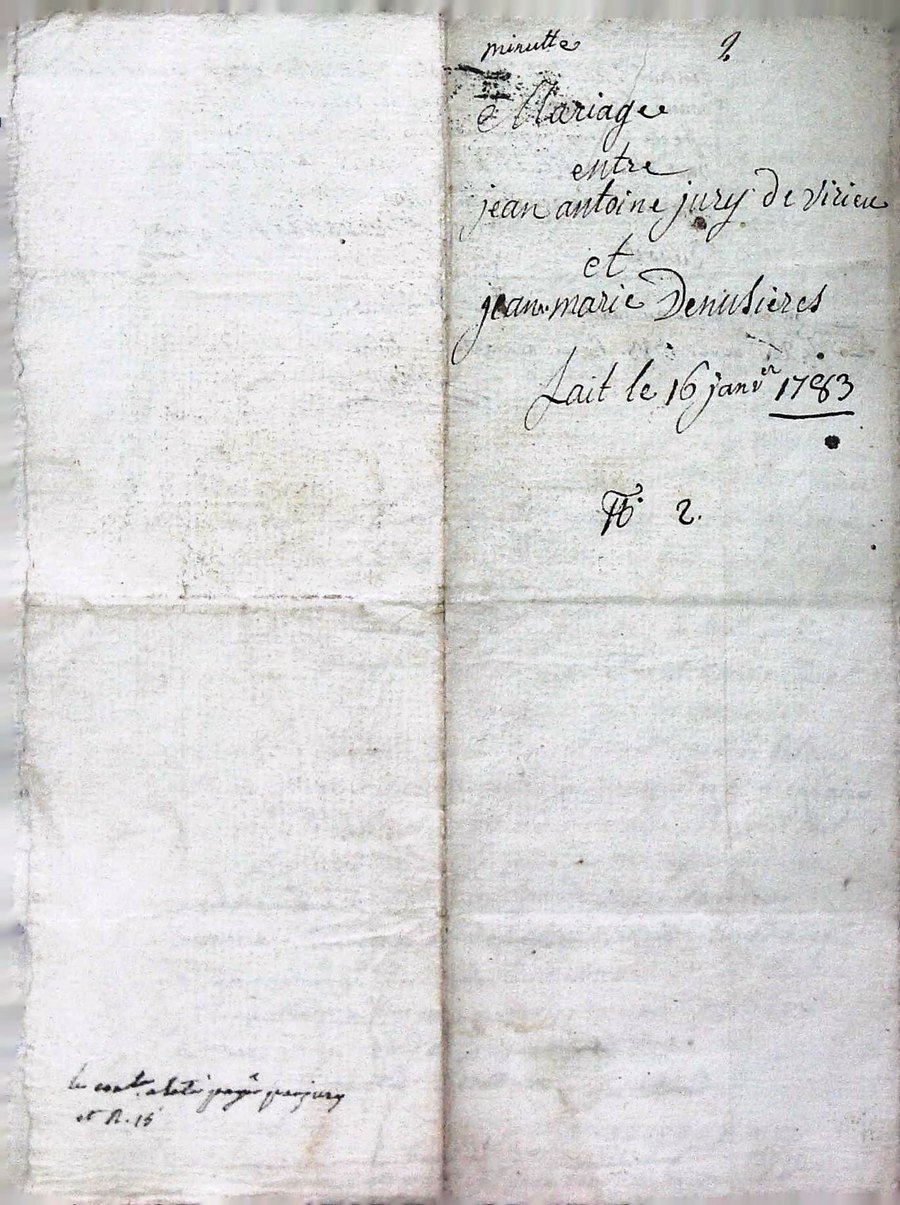 minutte 2
Mariage
entre
jean antoine jury de virieu
et
jean marie Denusieres
fait le 16 janver 1783
No 2.
le cont. a esté payé par jury
et R. 15